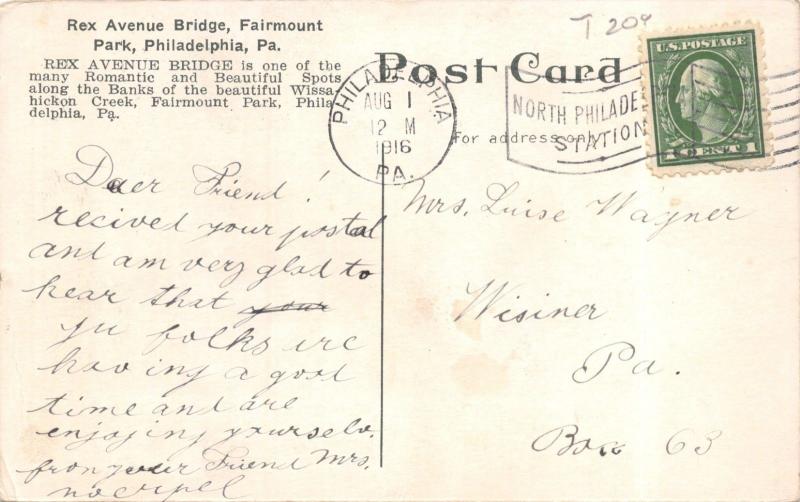 Rex Avenue Bridge, Fairmount
Park, Philadelphia, Pa.
REX AVENUE BRIDGE is one of the
many Romantic and Beautiful Spots
along the Banks of the beautiful Wissa-
hickon Creek, Fairmount Park, Phila-
delphia, Pa.
Post Card
For address only
T 209
PHILADELPHIA
AUG 1
12 M
1916
PA.
NORTH PHILADE
STATION
U.S. POSTAGE
1 CENT 1
Daer Friend!
recived your postal
and am very glad to
hear that your
yu folks are
having a good
time and are
enjoying yourselv.
from your Friend Mrs.
Mrs. Luise Wagner
Wisiner
Pa.
Box 63